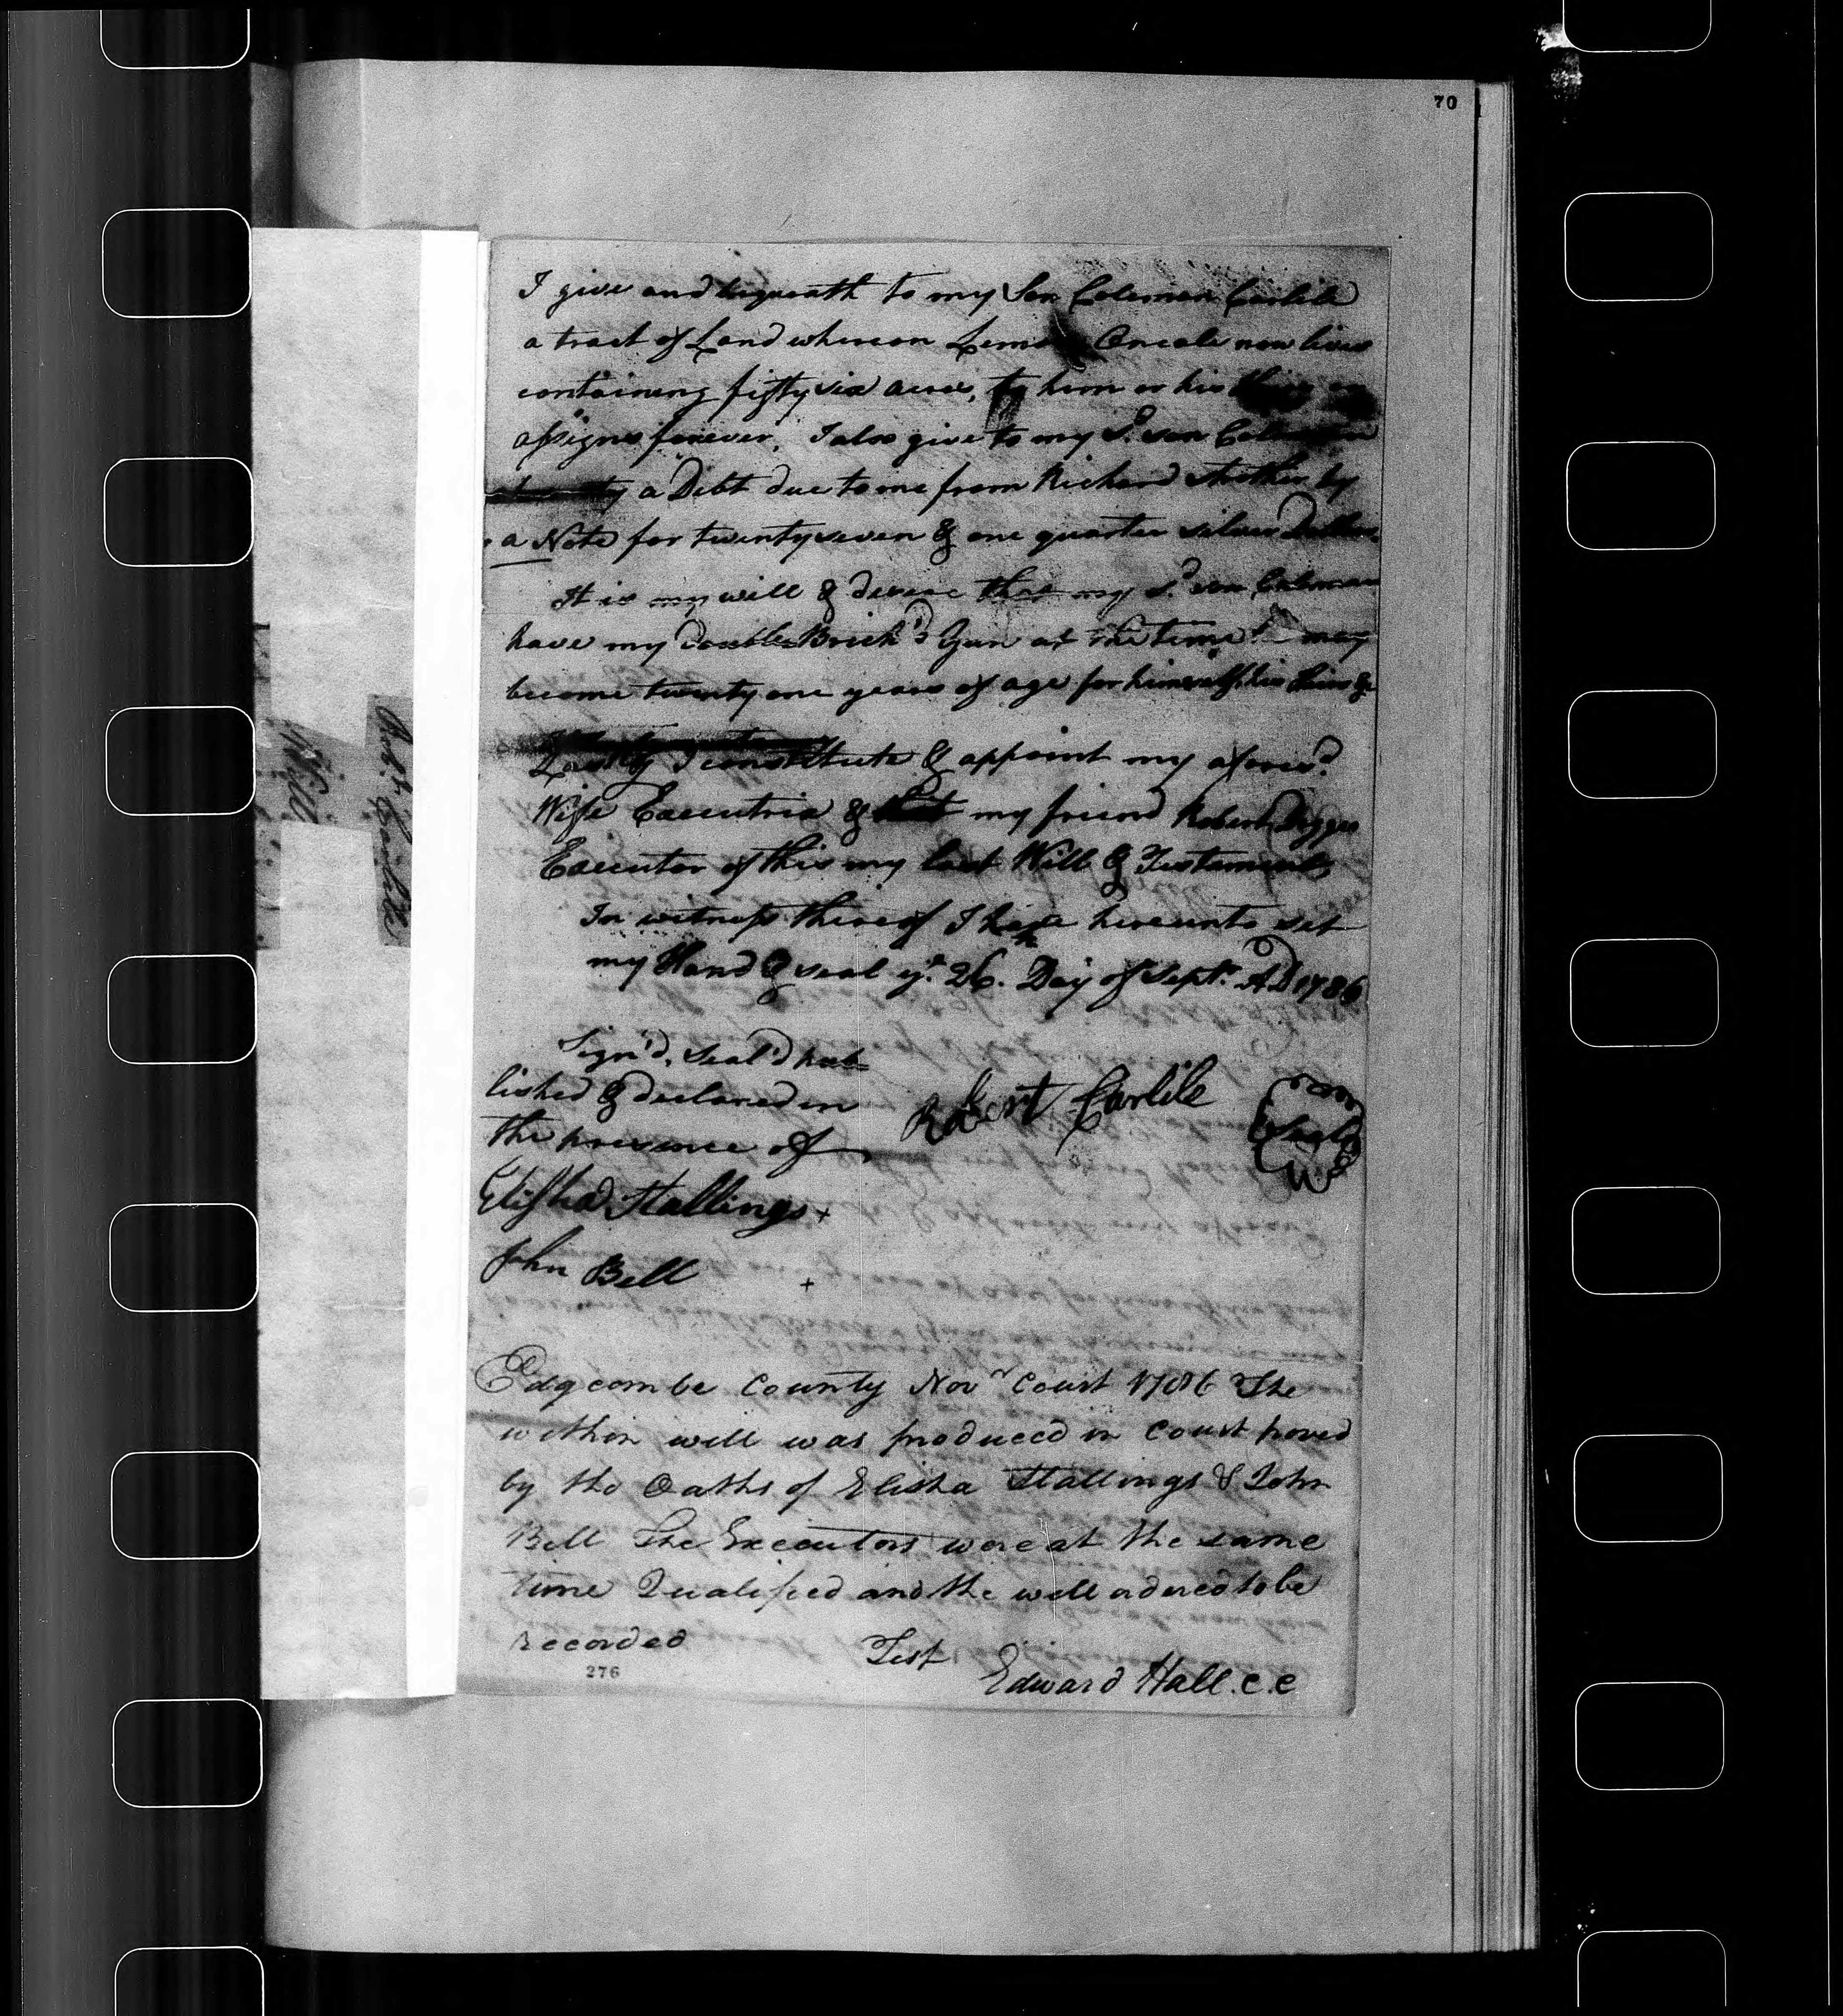 70
I give and bequeath to my Son Coleman Carlile
a tract of Land whereon now lives
containing fifty six acres, to him or his
assigns forever. I also give to my sd. son Coleman
a Debt due to me from Richard Strother by
a Note for twenty seven & one quarter silver Dollars
It is my will & desire that my sd. son Coleman
have my Gun at the time may
become twenty one years of age for himself, his heirs &c
Lastly I constitute & appoint my aforesd.
Wife Executrix & my friend Robert Diggs
Executor of this my last Will & Testament
In witness thereof I have hereunto set
my Hand & seal ye. 26th. Day of Septr. AD 1786
Sign'd, Seal'd pub=
lished & declared in
the presence of
Robert Carlile
Seal
Elisha Stallings +
John Bell +
Edgcombe County Novr Court 1786 The
within will was produced in Court proved
by the Oaths of Elisha Stallings & John
Bell The Executors were at the same
time Qualified and the will ordered to be
recorded
Test
Edward Hall. C.C
276
Robt. Carlile
Will